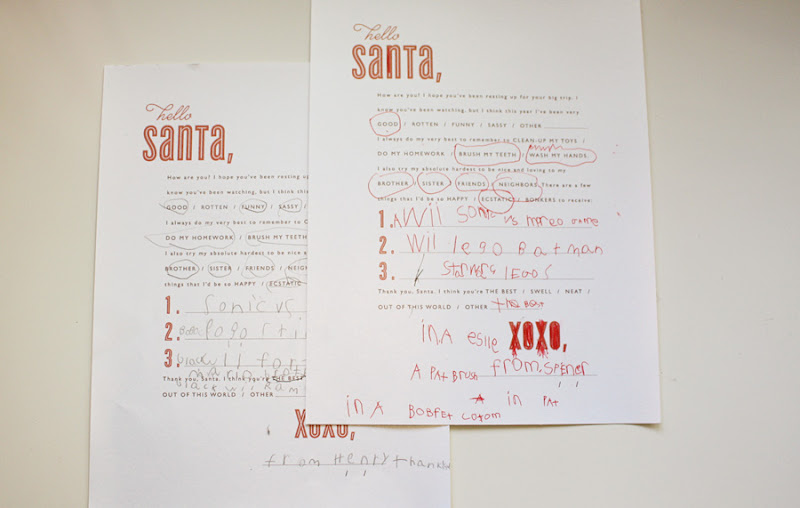 hello
SANTA,
How are you? I hope you've been resting up
know you've been watching, but I think this
GOOD / ROTTEN / FUNNY / SASSY /
I always do my very best to remember to C
DO MY HOMEWORK / BRUSH MY TEETH
I also try my absolute hardest to be nice
BROTHER / SISTER / FRIENDS /
things that I'd be so HAPPY / ECSTATIC
1. Sonic vs
2.
3.
Thank you, Santa. I think you're THE BEST
OUT OF THIS WORLD / OTHER
XOXO,
from Henry
hello
SANTA,
How are you? I hope you've been resting up for your big trip. I
know you've been watching, but I think this year I've been very
GOOD / ROTTEN / FUNNY / SASSY / OTHER
I always do my very best to remember to CLEAN UP MY TOYS /
DO MY HOMEWORK / BRUSH MY TEETH / WASH MY HANDS.
I also try my absolute hardest to be nice and loving to my
BROTHER / SISTER / FRIENDS / NEIGHBORS. There are a few
things that I'd be so HAPPY / ECSTATIC / BONKERS to receive:
1. A Wii Sonic vs mareo game
2. Wii lego Batman
3. Starwars legos
Thank you, Santa. I think you're THE BEST / SWELL / NEAT /
OUT OF THIS WORLD / OTHER the Best
in A esile XOXO,
A PAt Brush from, Spener
A in PAt
in A BOBPEt